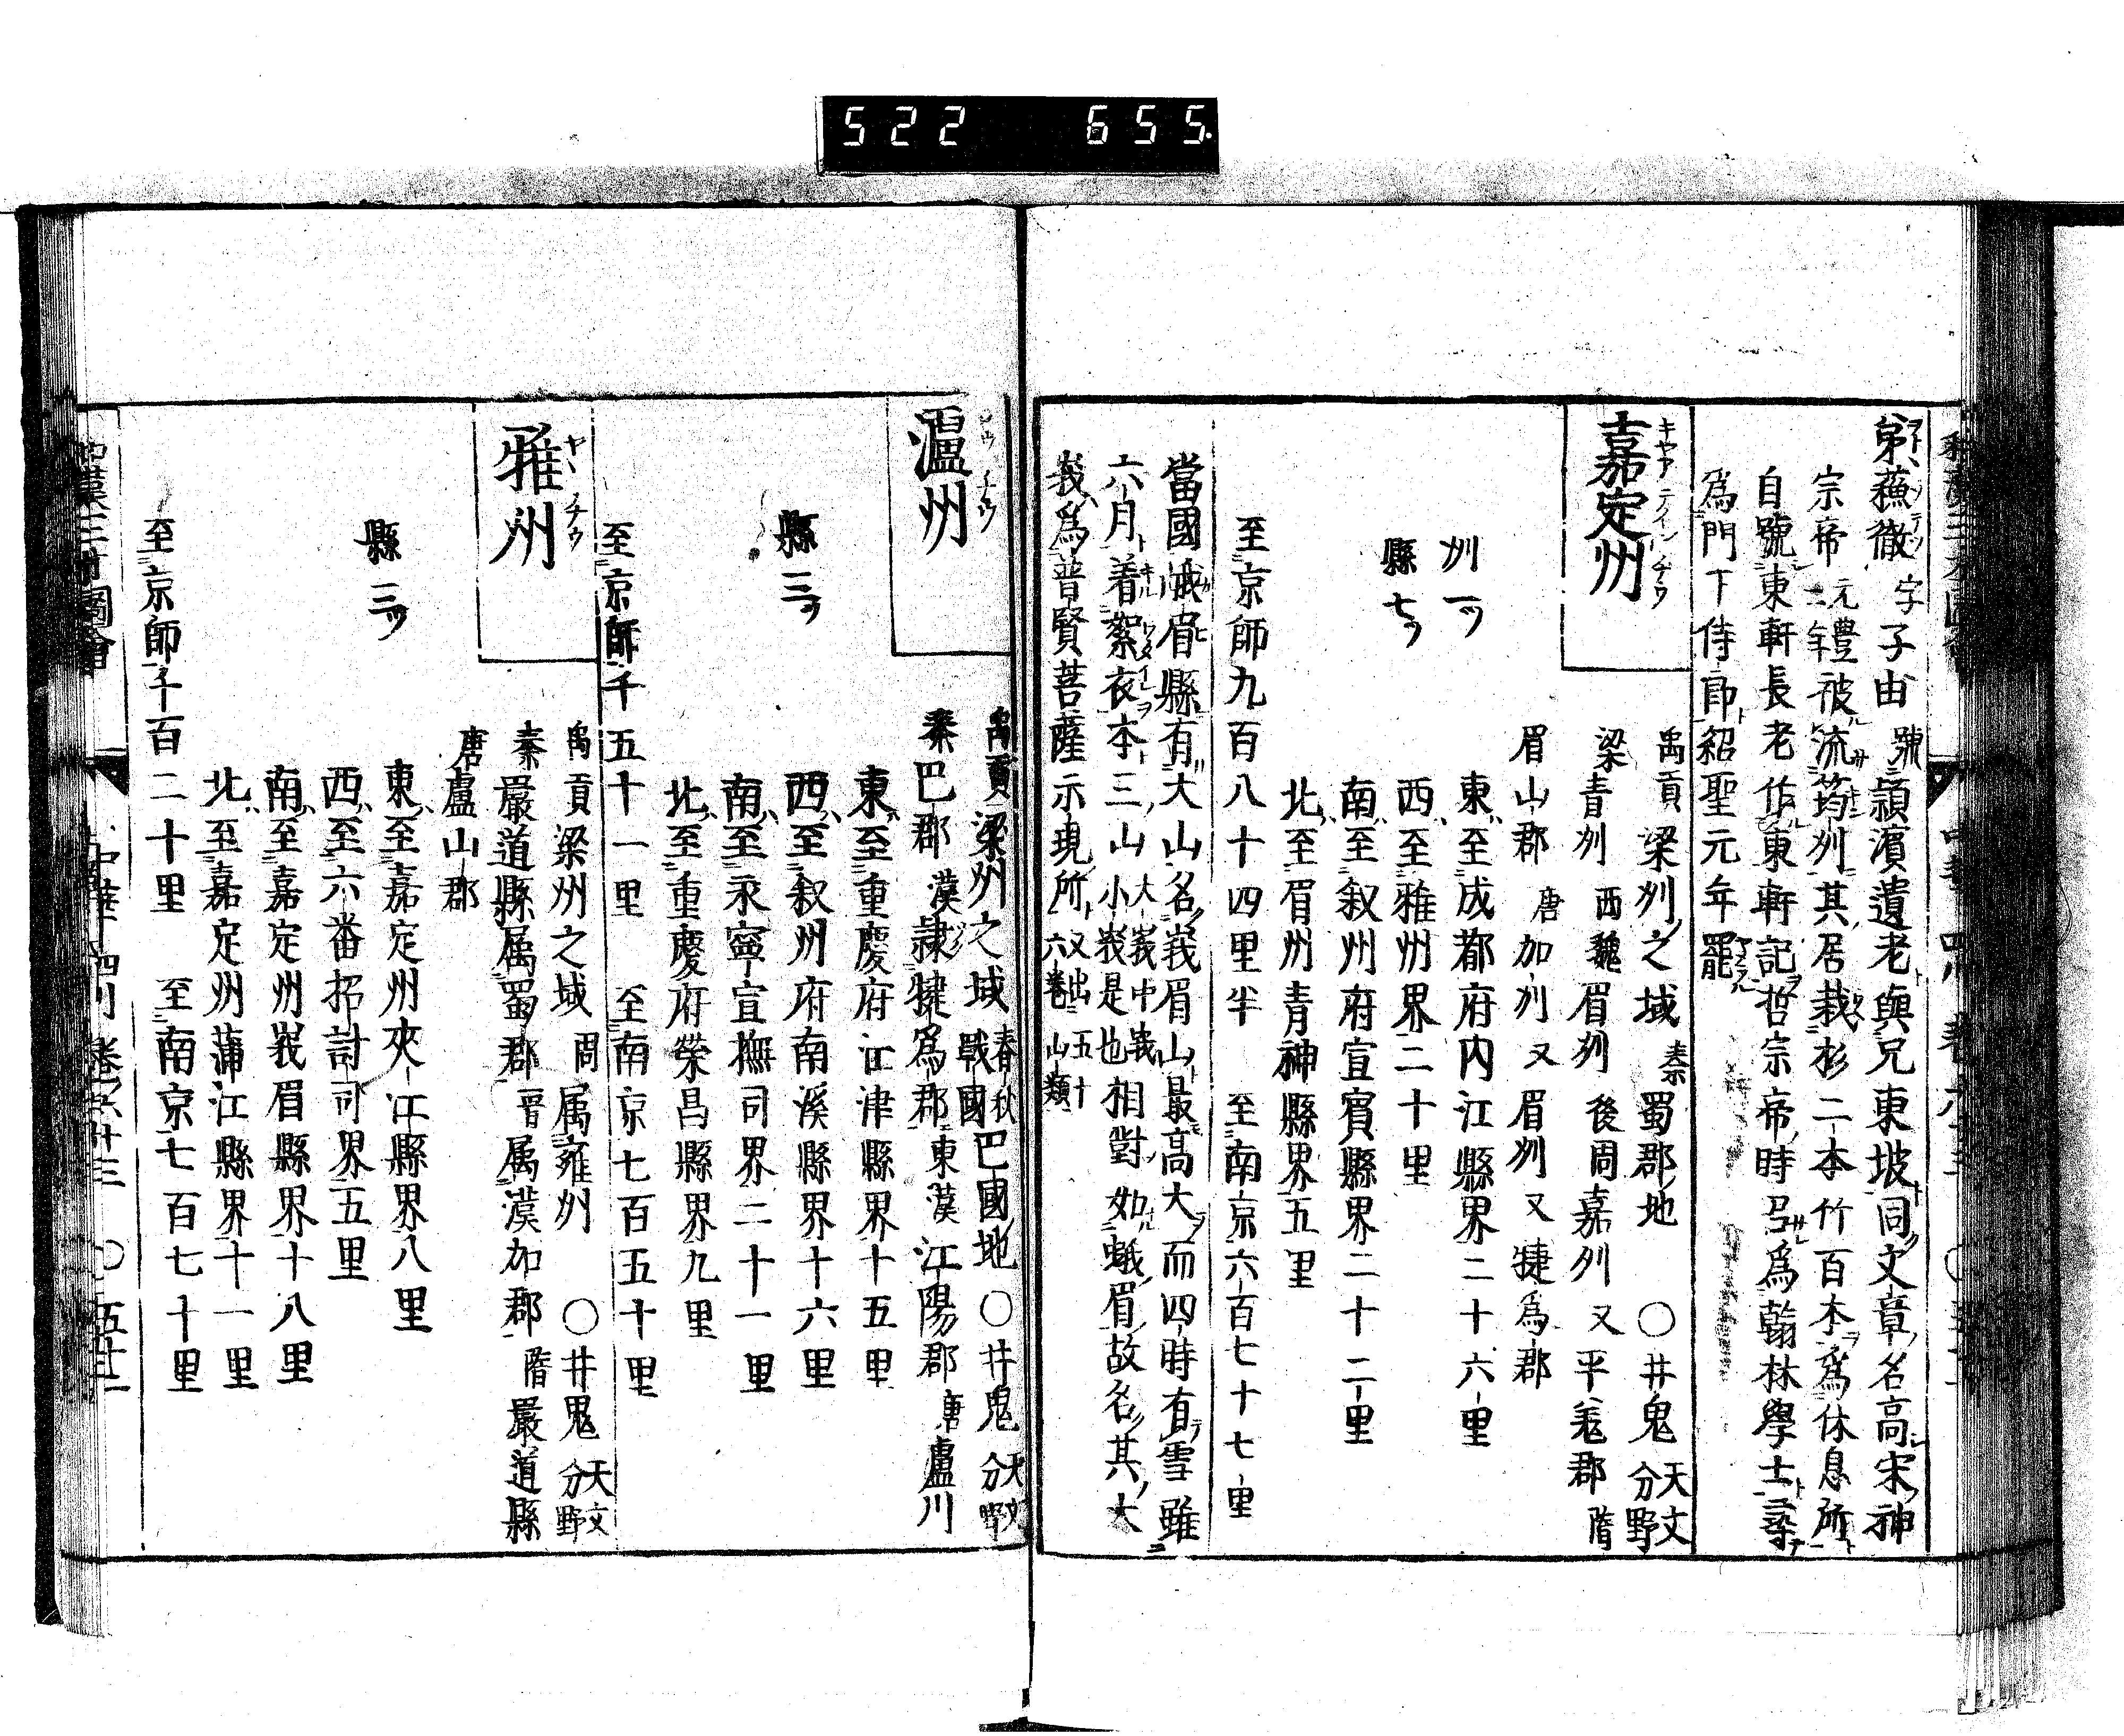 522 655
弟蘓徹字子由號頴濱遺老與兄東坡同文章名高宋神
宗帝元豐二年被流筠州其居栽杉二本竹百本爲休息所
自號東軒長老作東軒記哲宗帝時召爲翰林學士尋
爲門下侍郎紹聖元年罷
嘉定州
キヤアテインチウ
禹貢梁州之域 秦蜀郡地 ○井鬼 天文分野
梁青州 西魏眉州 後周嘉州 又平羌郡 隋
眉山郡 唐加州 又眉州 又犍爲郡
東至成都府内江縣界二十六里
州一ツ 西至雅州界二十里
縣七ツ 南至叙州府宣賓縣界二十二里
北至眉州青神縣界五里
至京師九百八十四里半 至南京六百七十七里
當國峨眉縣有大山名峩眉山最高大而四時有雪雖
六月着絮衣本三山大峩中峩小峩是也相對如蛾眉故名其大
峩爲普賢菩薩示現所又出五十六卷山類
瀘州
禹貢梁州之域 春秋戰國巴國地 ○井鬼 天文分野
秦巴郡 漢隷犍爲郡 東漢江陽郡 唐盧川
東至重慶府江津縣界十五里
縣三ツ 西至叙州府南溪縣界十六里
南至永寧宣撫司界二十一里
北至重慶府榮昌縣界九里
至京師千五十一里 至南京七百五十里
雅州
ヤアチウ
禹貢梁州之域 周属雍州 ○井鬼 天文分野
秦嚴道縣属蜀郡 晋属漢加郡 隋嚴道縣
唐盧山郡
東至嘉定州夾江縣界八里
縣三ツ 西至六番招討司界五里
南至嘉定州峩眉縣界十八里
北至嘉定州蒲江縣界十一里
至京師千百二十里 至南京七百七十里